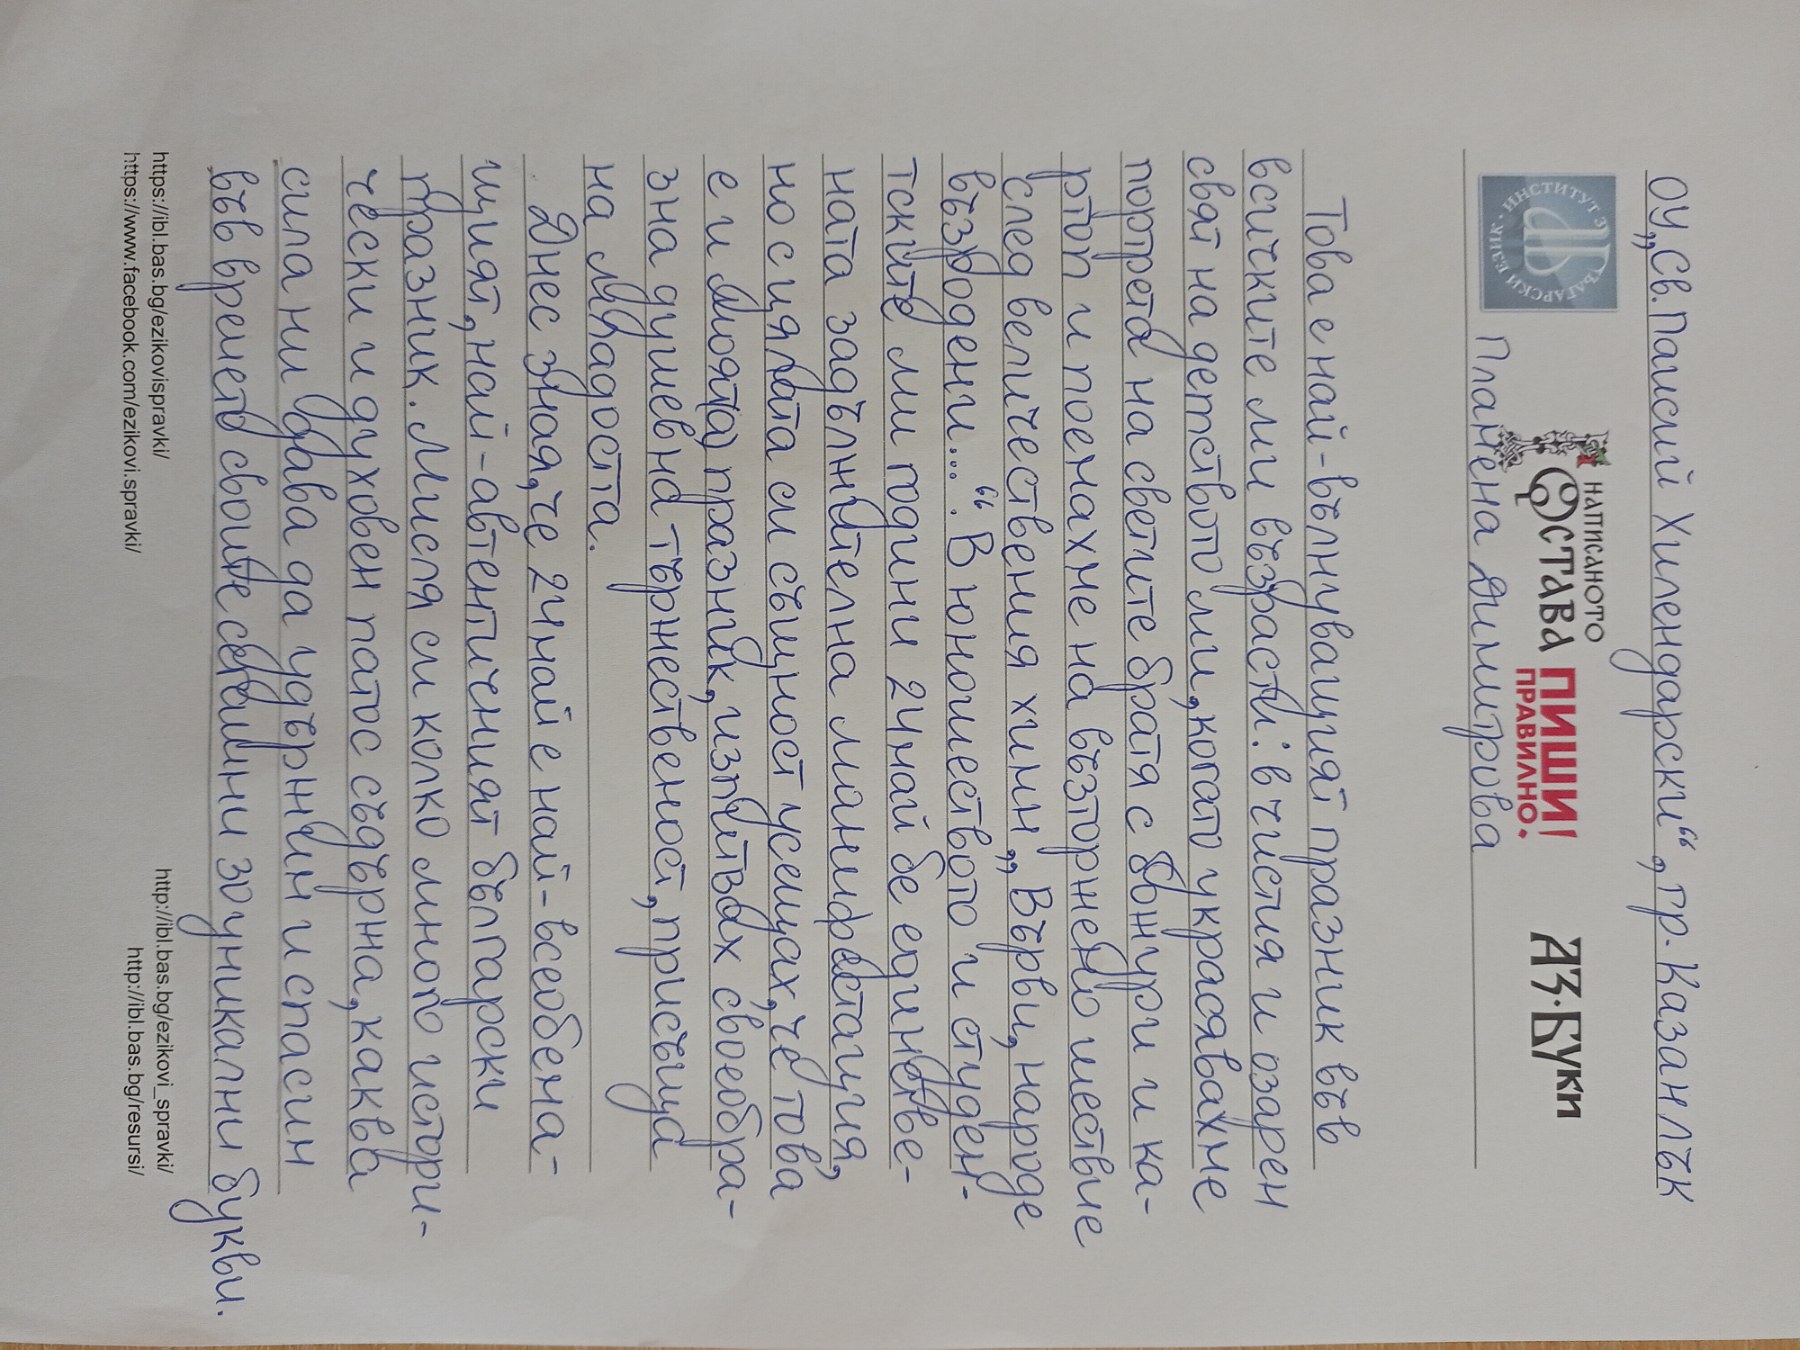 ОУ „Св. Паисий Хилендарски“, гр. Казанлък
ИНСТИТУТ ЗА БЪЛГАРСКИ ЕЗИК
НАПИСАНОТО
ОСТАВА
ПИШИ
ПРАВИЛНО!
АЗ·БУКИ
Пламена Димитрова
Това е най-вълнуващият празник във
всичките ми възрасти: в чистия и озарен
свят на детството ми, когато украсявахме
портрета на светите братя с божури и ка-
ртоп и поемахме на възторжено шествие
след величествения химн „Върви, народе
възродени...“. В юношеството и студен-
тските ми години 24 май бе единстве-
ната задължителна манифестация,
но с цялата си същност усещах, че това
е и моят(а) празник, изпитвах своеобра-
зна душевна тържественост, присъща
на младостта.
Днес зная, че 24 май е най-всеобема-
щият, най-автентичният български
празник. Мисля си колко много истори-
чески и духовен патос съдържа, каква
сила ни дава да удържим и спасим
във времето своите светини зоуникални букви.
https://ibl.bas.bg/ezikovispravki/
http://ibl.bas.bg/ezikovi_spravki/
https://www.facebook.com/ezikovi.spravki/
http://ibl.bas.bg/resursi/